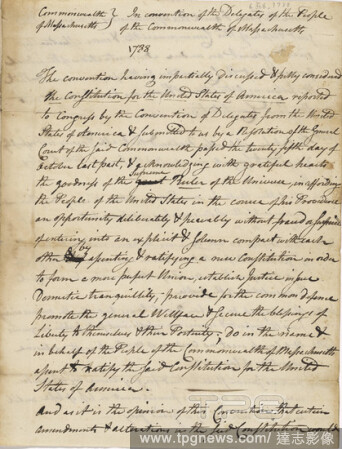 Commonwealth } In convention of the Delegates of the People
of Massachusetts } of the Commonwealth of Massachusetts
1788
The convention having impartially discussed & fully considered
the Constitution for the United States of America reported
to Congress by the Convention of Delegates from the United
States of America & submitted to us by a Resolution of the General
Court of the said Commonwealth passed the twenty fifth day of
October last past, & acknowledging with grateful hearts
Supreme
the goodness of the great Ruler of the Universe, in affording
the People of the United States in the course of his Providence
an opportunity deliberately & peaceably without fraud or surprise
of entering into an explicit & solemn compact with each
by
other assenting to & ratifying a new Constitution in order
to form a more perfect Union, establish Justice insure
Domestic tranquillity, provide for the common defence
promote the general Wellfare & secure the blessings of
Liberty to themselves & their Posterity; Do in the name &
in behalf of the People of the Commonwealth of Massachusetts
assent to & ratify the said Constitution for the United
States of America.
And as it is the opinion of this Convention that certain
amendments & alterations in the said Constitution would
www.tpgnews.com / 達志影像